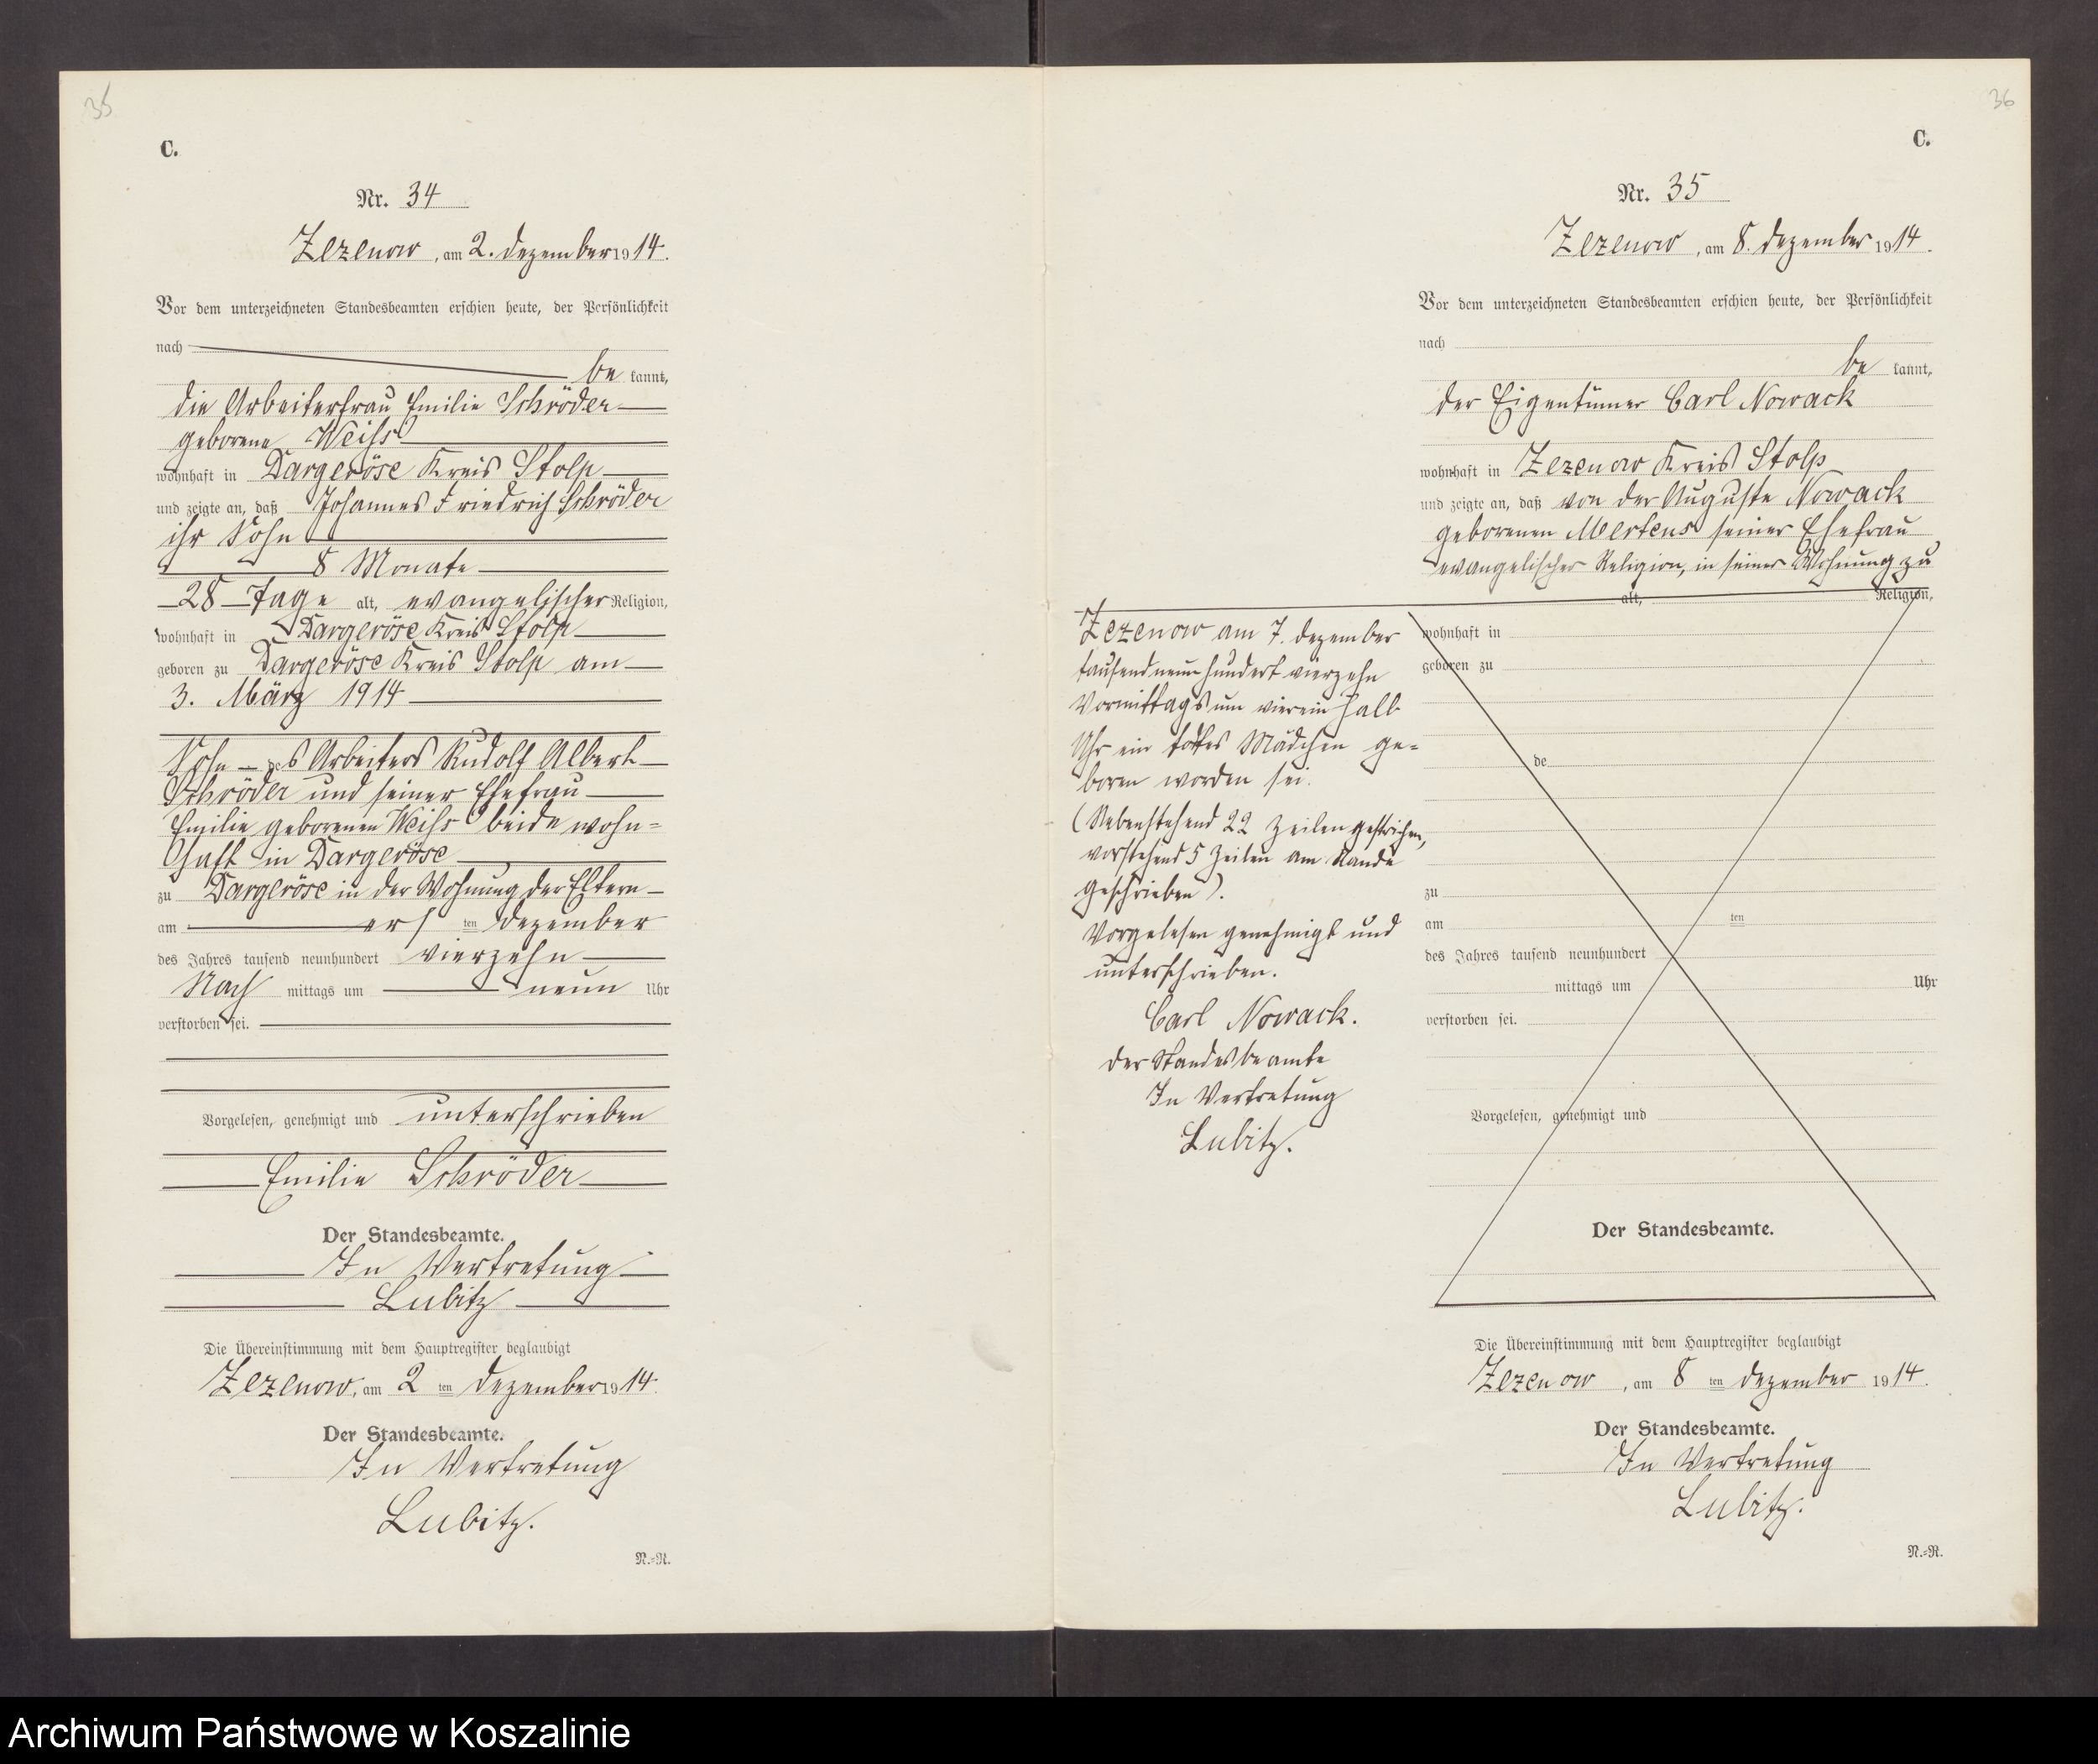 35
C.
Nr. 34
Zezenow, am 2. Dezember 1914.
Vor dem unterzeichneten Standesbeamten erschien heute, der Persönlichkeit
nach
be kannt,
die Arbeiterfrau Emilie Schröder
geborene Weiss
wohnhaft in Dargeröse Kreis Stolp
und zeigte an, daß Johannes Friedrich Schröder
ihr Sohn
8 Monate
28 Tage alt, evangelischer Religion,
wohnhaft in Dargeröse Kreis Stolp
geboren zu Dargeröse Kreis Stolp am
3. März 1914
Sohn des Arbeiters Rudolf Albert
Schröder und seiner Ehefrau
Emilie geborenen Weiss beide wohn=
haft in Dargeröse
zu Dargeröse in der Wohnung der Eltern
am ersten Dezember
des Jahres tausend neunhundert vierzehn
Nach mittags um neun Uhr
verstorben sei.
Vorgelesen, genehmigt und unterschrieben
Emilie Schröder
Der Standesbeamte.
In Vertretung
Lubitz
Die Übereinstimmung mit dem Hauptregister beglaubigt
Zezenow, am 2 ten Dezember 1914.
Der Standesbeamte.
In Vertretung
Lubitz.
N.=R.
36
C.
Nr. 35
Zezenow, am 8. Dezember 1914.
Vor dem unterzeichneten Standesbeamten erschien heute, der Persönlichkeit
nach
be kannt,
der Eigentümer Carl Nowack
wohnhaft in Zezenow Kreis Stolp
und zeigte an, daß von der Auguste Nowack
geborenen Mertens seiner Ehefrau
evangelischer Religion, in seiner Wohnung zu
alt, Religion,
Zezenow am 7. Dezember
tausendneunhundert vierzehn
Vormittags um viereinhalb
Uhr ein totes Mädchen ge=
boren worden sei.
(Nebenstehend 22 Zeilen gestrichen,
vorstehend 5 Zeilen am Rande
geschrieben).
Vorgelesen genehmigt und
unterschrieben.
Carl Nowack.
Der Standesbeamte
In Vertretung
Lubitz.
wohnhaft in
geboren zu
de
zu
am ten
des Jahres tausend neunhundert
mittags um Uhr
verstorben sei.
Vorgelesen, genehmigt und
Der Standesbeamte.
Die Übereinstimmung mit dem Hauptregister beglaubigt
Zezenow, am 8 ten Dezember 1914.
Der Standesbeamte.
In Vertretung
Lubitz.
N.=R.
Archiwum Państwowe w Koszalinie